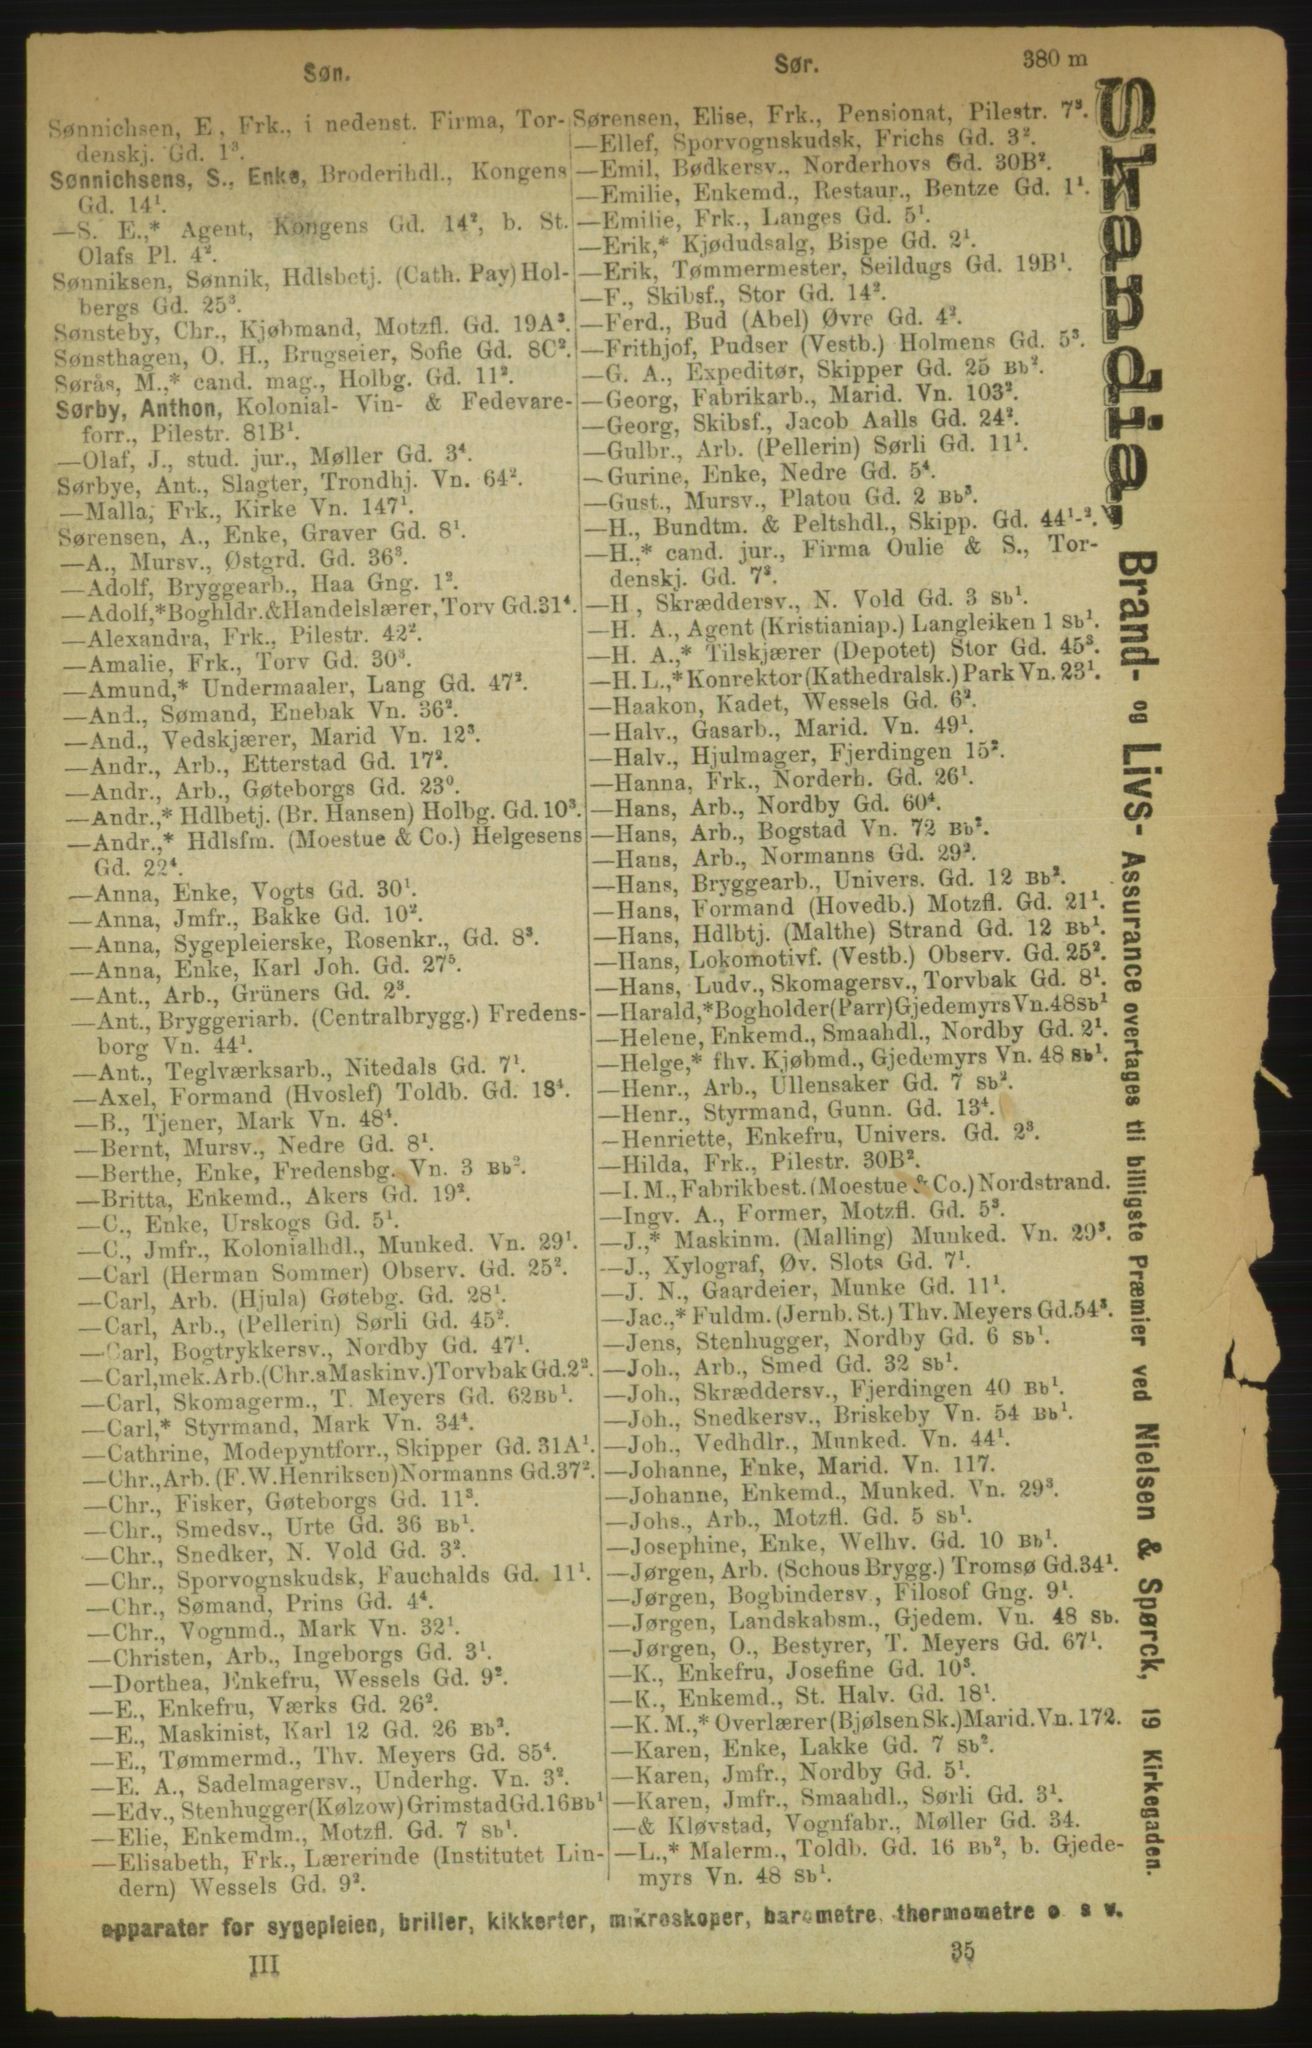 Søn.
Sør.
380 m
Sønnichsen, E, Frk., i nedenst. Firma, Tor-
denskj. Gd. 1³.
Sønnichsens, S., Enke, Broderihdl., Kongens
Gd. 14¹.
—S. E.,* Agent, Kongens Gd. 14², b. St.
Olafs Pl. 4².
Sønniksen, Sønnik, Hdlsbetj. (Cath. Pay) Hol-
bergs Gd. 25³.
Sønsteby, Chr., Kjøbmand, Motzfl. Gd. 19A³.
Sønsthagen, O. H., Brugseier, Sofie Gd. 8C².
Sørås, M.,* cand. mag., Holbg. Gd. 11².
Sørby, Anthon, Kolonial- Vin- & Fedevare-
forr., Pilestr. 81B¹.
—Olaf, J., stud. jur., Møller Gd. 3⁴.
Sørbye, Ant., Slagter, Trondhj. Vn. 64².
—Malla, Frk., Kirke Vn. 147¹.
Sørensen, A., Enke, Graver Gd. 8¹.
—A., Mursv., Østgrd. Gd. 36³.
—Adolf, Bryggearb., Haa Gng. 1².
—Adolf,*Boghldr.&Handelslærer, Torv Gd.31⁴.
—Alexandra, Frk., Pilestr. 42².
—Amalie, Frk., Torv Gd. 30³.
—Amund,* Undermaaler, Lang Gd. 47².
—And., Sømand, Enebak Vn. 36².
—And., Vedskjærer, Marid Vn. 12³.
—Andr., Arb., Etterstad Gd. 17².
—Andr., Arb., Gøteborgs Gd. 23⁰.
—Andr.,* Hdlbetj. (Br. Hansen) Holbg. Gd. 10³.
—Andr.,* Hdlsfm. (Moestue & Co.) Helgesens
Gd. 22⁴.
—Anna, Enke, Vogts Gd. 30¹.
—Anna, Jmfr., Bakke Gd. 10².
—Anna, Sygepleierske, Rosenkr., Gd. 8³.
—Anna, Enke, Karl Joh. Gd. 27⁵.
—Ant., Arb., Grüners Gd. 2³.
—Ant., Bryggeriarb. (Centralbrygg.) Fredens-
borg Vn. 44¹.
—Ant., Teglværksarb., Nitedals Gd. 7¹.
—Axel, Formand (Hvoslef) Toldb. Gd. 18⁴.
—B., Tjener, Mark Vn. 48⁴.
—Bernt, Mursv., Nedre Gd. 8¹.
—Berthe, Enke, Fredensbg. Vn. 3 Bb².
—Britta, Enkemd., Akers Gd. 19².
—C., Enke, Urskogs Gd. 5¹.
—C., Jmfr., Kolonialhdl., Munked. Vn. 29¹.
—Carl (Herman Sommer) Observ. Gd. 25².
—Carl, Arb. (Hjula) Gøtebg. Gd. 28¹.
—Carl, Arb., (Pellerin) Sørli Gd. 45².
—Carl, Bogtrykkersv., Nordby Gd. 47¹.
—Carl, mek. Arb. (Chr.a Maskinv.) Torvbak Gd. 2².
—Carl, Skomagerm., T. Meyers Gd. 62Bb¹.
—Carl,* Styrmand, Mark Vn. 34⁴.
—Cathrine, Modepyntforr., Skipper Gd. 31A¹.
—Chr., Arb. (F. W. Henriksen) Normanns Gd. 37².
—Chr., Fisker, Gøteborgs Gd. 11³.
—Chr., Smedsv., Urte Gd. 36 Bb¹.
—Chr., Snedker, N. Vold Gd. 3².
—Chr., Sporvognskudsk, Fauchalds Gd. 11¹.
—Chr., Sømand, Prins Gd. 4⁴.
—Chr., Vognmd., Mark Vn. 32¹.
—Christen, Arb., Ingeborgs Gd. 3¹.
—Dorthea, Enkefru, Wessels Gd. 9².
—E., Enkefru, Værks Gd. 26².
—E., Maskinist, Karl 12 Gd. 26 Bb².
—E., Tømmermd., Thv. Meyers Gd. 85⁴.
—E. A., Sadelmagersv., Underhg. Vn. 3².
—Edv., Stenhugger (Kølzow) Grimstad Gd. 16Bb¹
—Elie, Enkemdm., Motzfl. Gd. 7 Sb¹.
—Elisabeth, Frk., Lærerinde (Institutet Lin-
dern) Wessels Gd. 9².
Sørensen, Elise, Frk., Pensionat, Pilestr. 7³.
—Ellef, Sporvognskudsk, Frichs Gd. 3².
—Emil, Bødkersv., Norderhovs Gd. 30B².
—Emilie, Enkemd., Restaur., Bentze Gd. 1¹.
—Emilie, Frk., Langes Gd. 5¹.
—Erik,* Kjødudsalg, Bispe Gd. 2¹.
—Erik, Tømmermester, Seildugs Gd. 19B¹.
—F., Skibsf., Stor Gd. 14².
—Ferd., Bud (Abel) Øvre Gd. 4².
—Frithjof, Pudser (Vestb.) Holmens Gd. 5³.
—G. A., Expeditør, Skipper Gd. 25 Bb².
—Georg, Fabrikarb., Marid. Vn. 103².
—Georg, Skibsf., Jacob Aalls Gd. 24².
—Gulbr., Arb. (Pellerin) Sørli Gd. 11¹.
—Gurine, Enke, Nedre Gd. 5⁴.
—Gust., Mursv., Platou Gd. 2 Bb³.
—H., Bundtm. & Peltshdl., Skipp. Gd. 44¹-².
—H.,* cand. jur., Firma Oulie & S., Tor-
denskj. Gd. 7³.
—H, Skræddersv., N. Vold Gd. 3 Sb¹.
—H. A., Agent (Kristianiap.) Langleiken 1 Sb¹.
—H. A.,* Tilskjærer (Depotet) Stor Gd. 45³.
—H. L.,* Konrektor (Kathedralsk.) Park Vn. 23¹.
—Haakon, Kadet, Wessels Gd. 6².
—Halv., Gasarb., Marid. Vn. 49¹.
—Halv., Hjulmager, Fjerdingen 15².
—Hanna, Frk., Norderh. Gd. 26¹.
—Hans, Arb., Nordby Gd. 60⁴.
—Hans, Arb., Bogstad Vn. 72 Bb².
—Hans, Arb., Normanns Gd. 29².
—Hans, Bryggearb., Univers. Gd. 12 Bb².
—Hans, Formand (Hovedb.) Motzfl. Gd. 21¹.
—Hans, Hdlbtj. (Malthe) Strand Gd. 12 Bb¹.
—Hans, Lokomotivf. (Vestb.) Observ. Gd. 25².
—Hans, Ludv., Skomagersv., Torvbak Gd. 8¹.
—Harald,*Bogholder (Parr) Gjedemyrs Vn. 48 Sb¹
—Helene, Enkemd., Smaahdl., Nordby Gd. 2¹.
—Helge,* fhv. Kjøbmd., Gjedemyrs Vn. 48 Sb¹.
—Henr., Arb., Ullensaker Gd. 7 Sb².
—Henr., Styrmand, Gunn. Gd. 13⁴.
—Henriette, Enkefru, Univers. Gd. 2³.
—Hilda, Frk., Pilestr. 30B².
—I. M., Fabrikbest. (Moestue & Co.) Nordstrand.
—Ingv. A., Former, Motzfl. Gd. 5³.
—J.,* Maskinm. (Malling) Munked. Vn. 29³.
—J., Xylograf, Øv. Slots Gd. 7¹.
—J. N., Gaardeier, Munke Gd. 11¹.
—Jac.,* Fuldm. (Jernb. St.) Thv. Meyers Gd. 54³.
—Jens, Stenhugger, Nordby Gd. 6 Sb¹.
—Joh., Arb., Smed Gd. 32 Sb¹.
—Joh., Skræddersv., Fjerdingen 40 Bb¹.
—Joh., Snedkersv., Briskeby Vn. 54 Bb¹.
—Joh., Vedhdlr., Munked. Vn. 44¹.
—Johanne, Enke, Marid. Vn. 117.
—Johanne, Enkemd., Munked. Vn. 29³.
—Johs., Arb., Motzfl. Gd. 5 Sb¹.
—Josephine, Enke, Welhv. Gd. 10 Bb¹.
—Jørgen, Arb. (Schous Brygg.) Tromsø Gd. 34¹.
—Jørgen, Bogbindersv, Filosof Gng. 9¹.
—Jørgen, Landskabsm., Gjedem. Vn. 48 Sb.
—Jørgen, O., Bestyrer, T. Meyers Gd. 67¹.
—K., Enkefru, Josefine Gd. 10³.
—K., Enkemd., St. Halv. Gd. 18¹.
—K. M.,* Overlærer (Bjølsen Sk.) Marid. Vn. 172.
—Karen, Enke, Lakke Gd. 7 Sb².
—Karen, Jmfr., Nordby Gd. 5¹.
—Karen, Jmfr., Smaahdl., Sørli Gd. 3¹.
—& Kløvstad, Vognfabr., Møller Gd. 34.
—L.,* Malerm., Toldb. Gd. 16 Bb², b. Gjede-
myrs Vn. 48 Sb¹.
Skandia, Brand- og Livs- Assurance overtages til billigste Præmier ved Nielsen & Spørck, 19 Kirkegaden.
apparater for sygepleien, briller, kikkerter, mikroskoper, barometre, thermometre o s v.
III
35